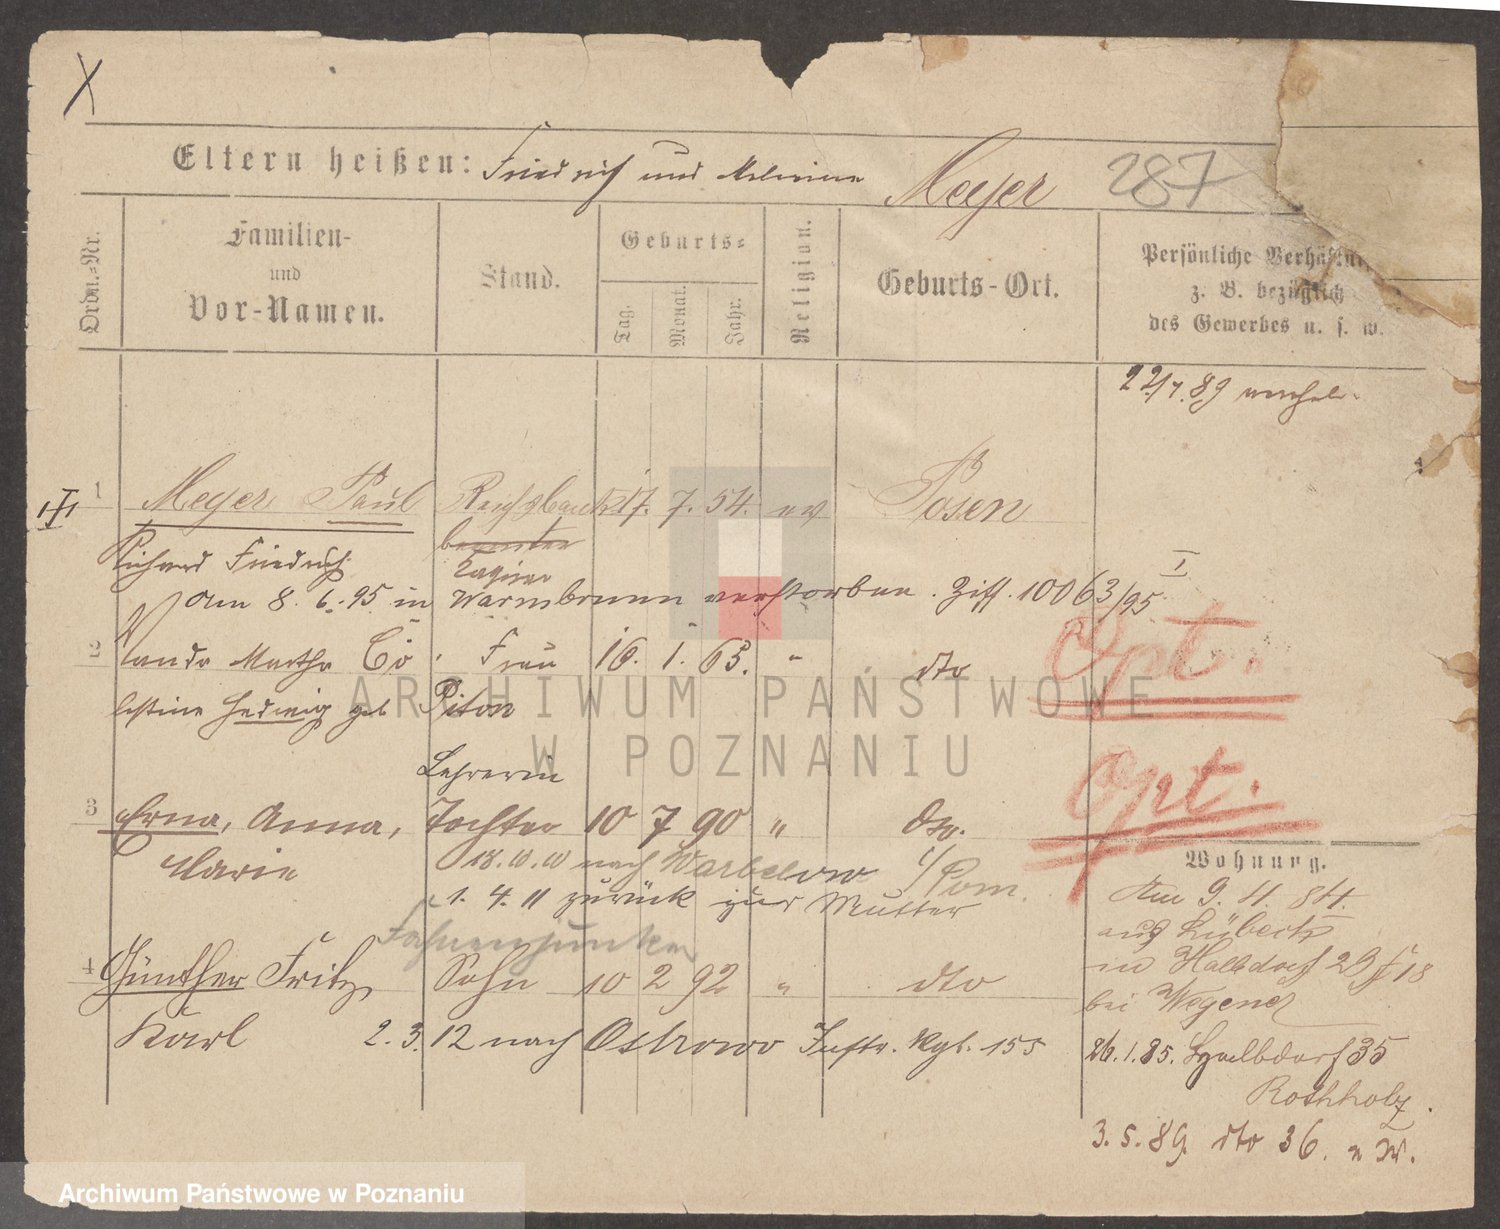 X
Eltern heißen: Friedrich und Melwine Meyer 287
Ordn.-Nr.
Familien-
und
Vor-Namen.
Stand.
Geburts-
Tag.
Monat.
Jahr.
Religion.
Geburts-Ort.
Persönliche Verhältn
z. B. bezüglich
des Gewerbes u. s. w.
22/7. 89
1 Meyer Paul Reichsbank 17. 7. 54. ev Posen
Richard Friedrich beamter
I
am 8. 6. 95 in Warmbrunn verstorben. Ziff. 10063/95
Opt.
2 Wanda Martha Cö- Frau 16. 1. 65. " dto
lestine Hedwig geb Piton
Lehrerin
Opt.
3 Erna, Anna, Tochter 10 7 90 " dto.
Marie 18. 10. 10 nach Warbelow i/Pom.
1. 4. 11 zurück zur Mutter
Fahnenjunker
4 Günther Fritz Sohn 10 2 92 " dto
Karl 2. 3. 12 nach Ostrowo Inftr. Rgt. 155
Wohnung.
Am 9. 11. 84.
aus Lübeck
in Halbdorf 29 18
bei Wegener
26. 1. 85. Halbdorf 35
Rothholz.
3. 5. 89. dto 36. n W.
ARCHIWUM PAŃSTWOWE
W POZNANIU
Archiwum Państwowe w Poznaniu